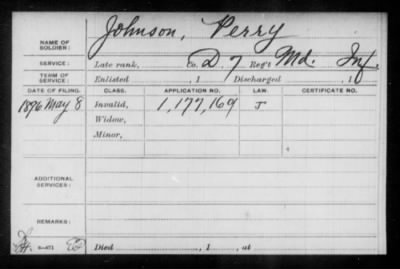 NAME OF SOLDIER: Johnson, Perry
SERVICE: Late rank, Co. D 7 Reg't Md. Inf.
TERM OF SERVICE: Enlisted , 1 Discharged , 1
DATE OF FILING. CLASS. APPLICATION NO. LAW. CERTIFICATE NO.
1896 May 8 Invalid, 1,177,169 J
Widow,
Minor,
ADDITIONAL SERVICES:
REMARKS:
Died , 1 , at